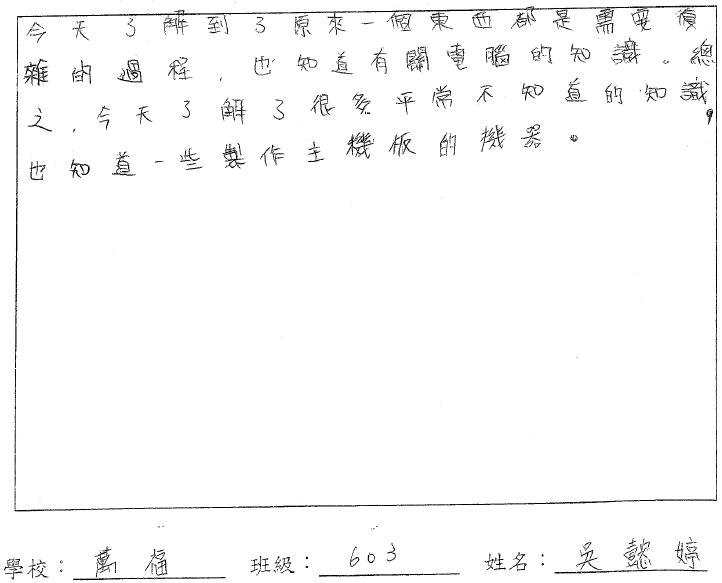 今天了解到了原來一個東西都是需要復
雜的過程，也知道有關電腦的知識。總
之，今天了解了很多平常不知道的知識，
也知道一些製作主機板的機器。
學校：萬福 班級：603 姓名：吳懿婷